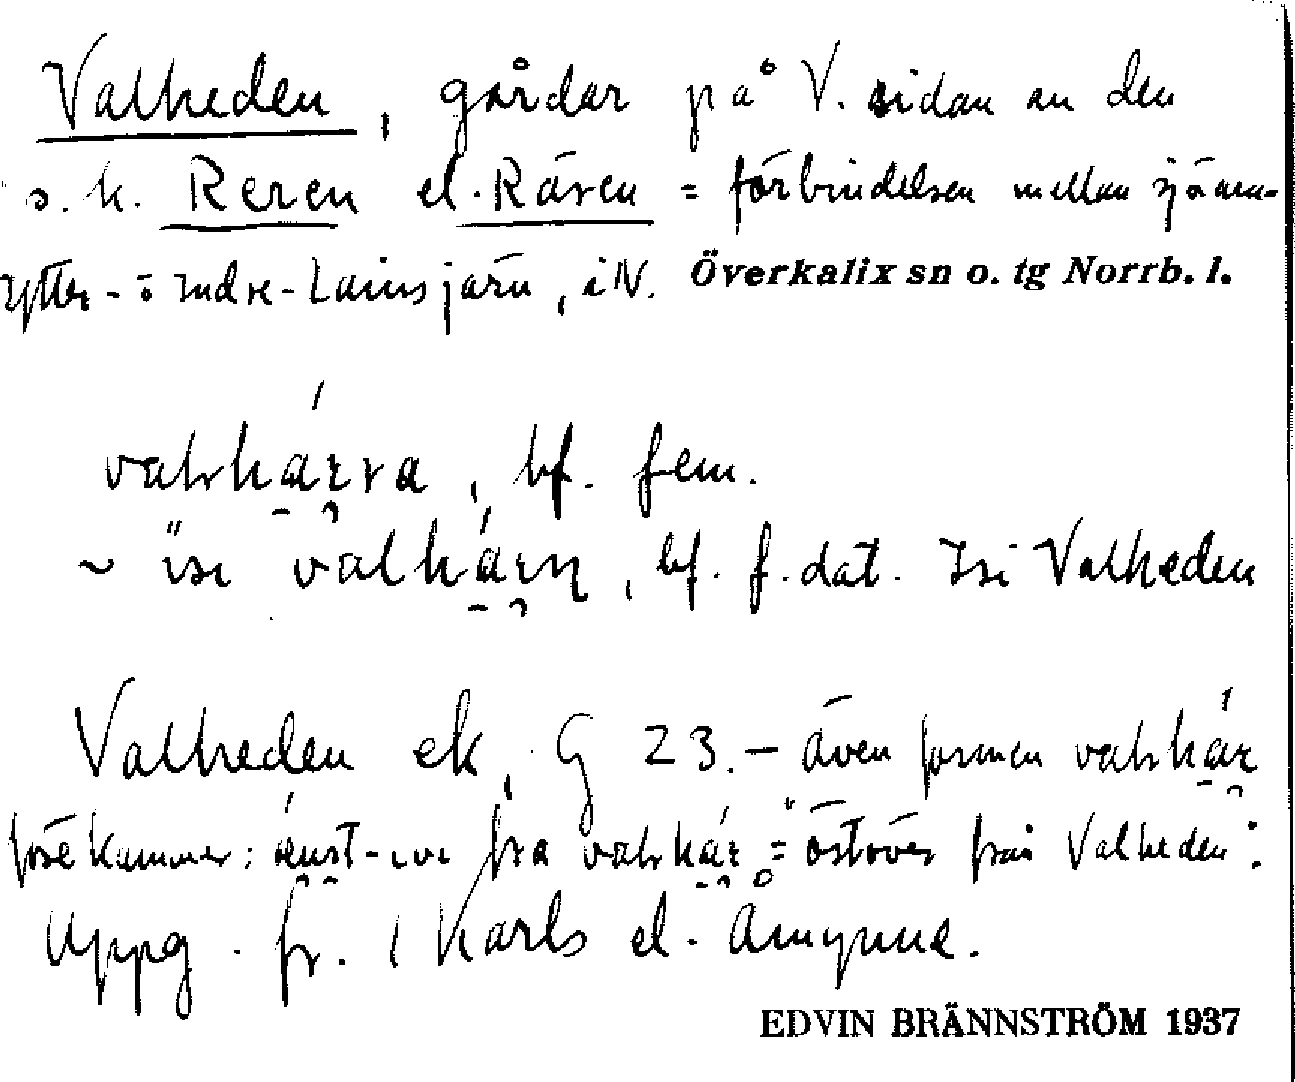 Valheden, gårdar på V. sidan av den
s. k. Reren el. Räven = förbindelsen mellan sjöarn-
Ytter- o Indre- Lainsjärv, i N. Överkalix sn o. tg Norrb. l.
bf. fem.
~ bf. f. dat. Isi Valheden
Valheden ek, G 23. – även formen
förekommer: = öströver från Valheden:
Uppg. fr. Karls el. Åmynne.
EDVIN BRÄNNSTRÖM 1937